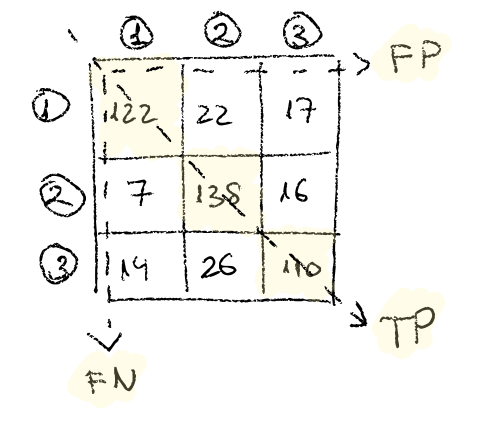 ① ② ③
FP
① 122 22 17
② 7 138 16
③ 14 26 110
TP
FN